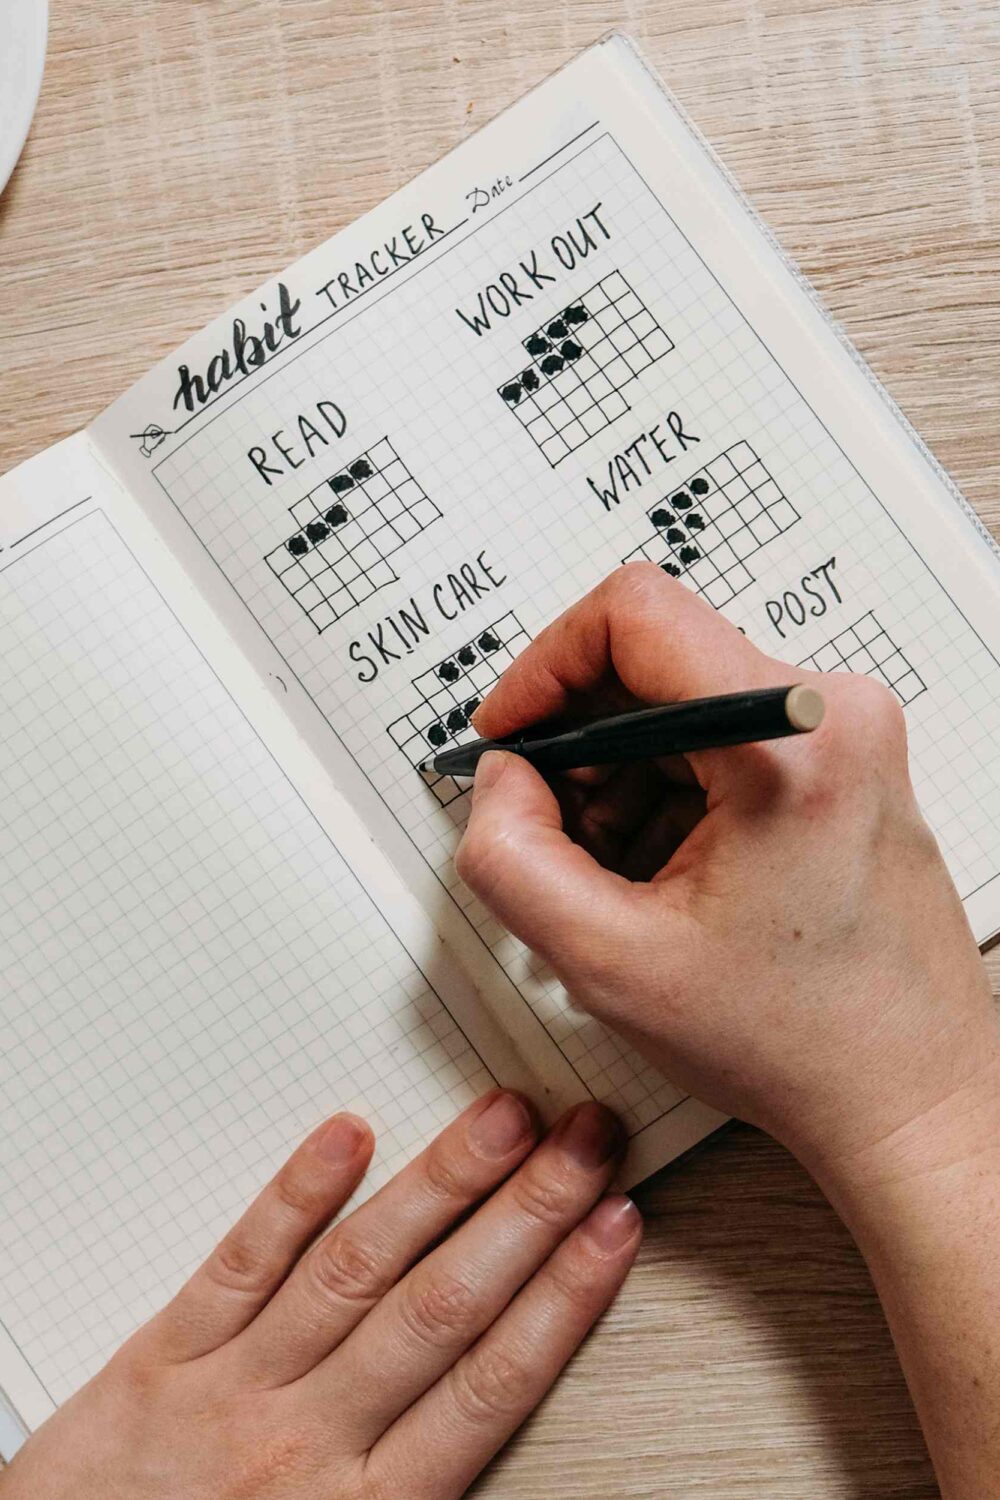 habit TRACKER Date
WORK OUT
READ
WATER
SKIN CARE
POST